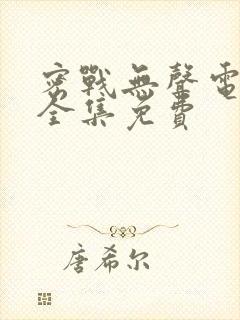 密戰無聲電
全集免費
唐希尔